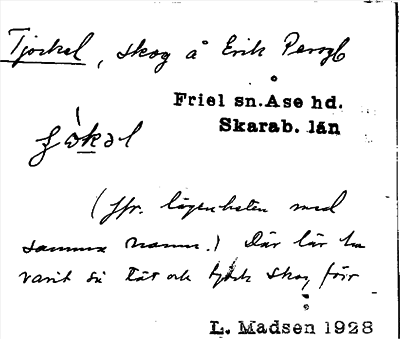 Tjockel, skog å Erik Persgb
Friel sn. Åse hd.
Skarab. län
(jfr. lägenheten med
samma namn.) Där lär ha
varit så tät och tjock skog förr
L. Madsen 1928